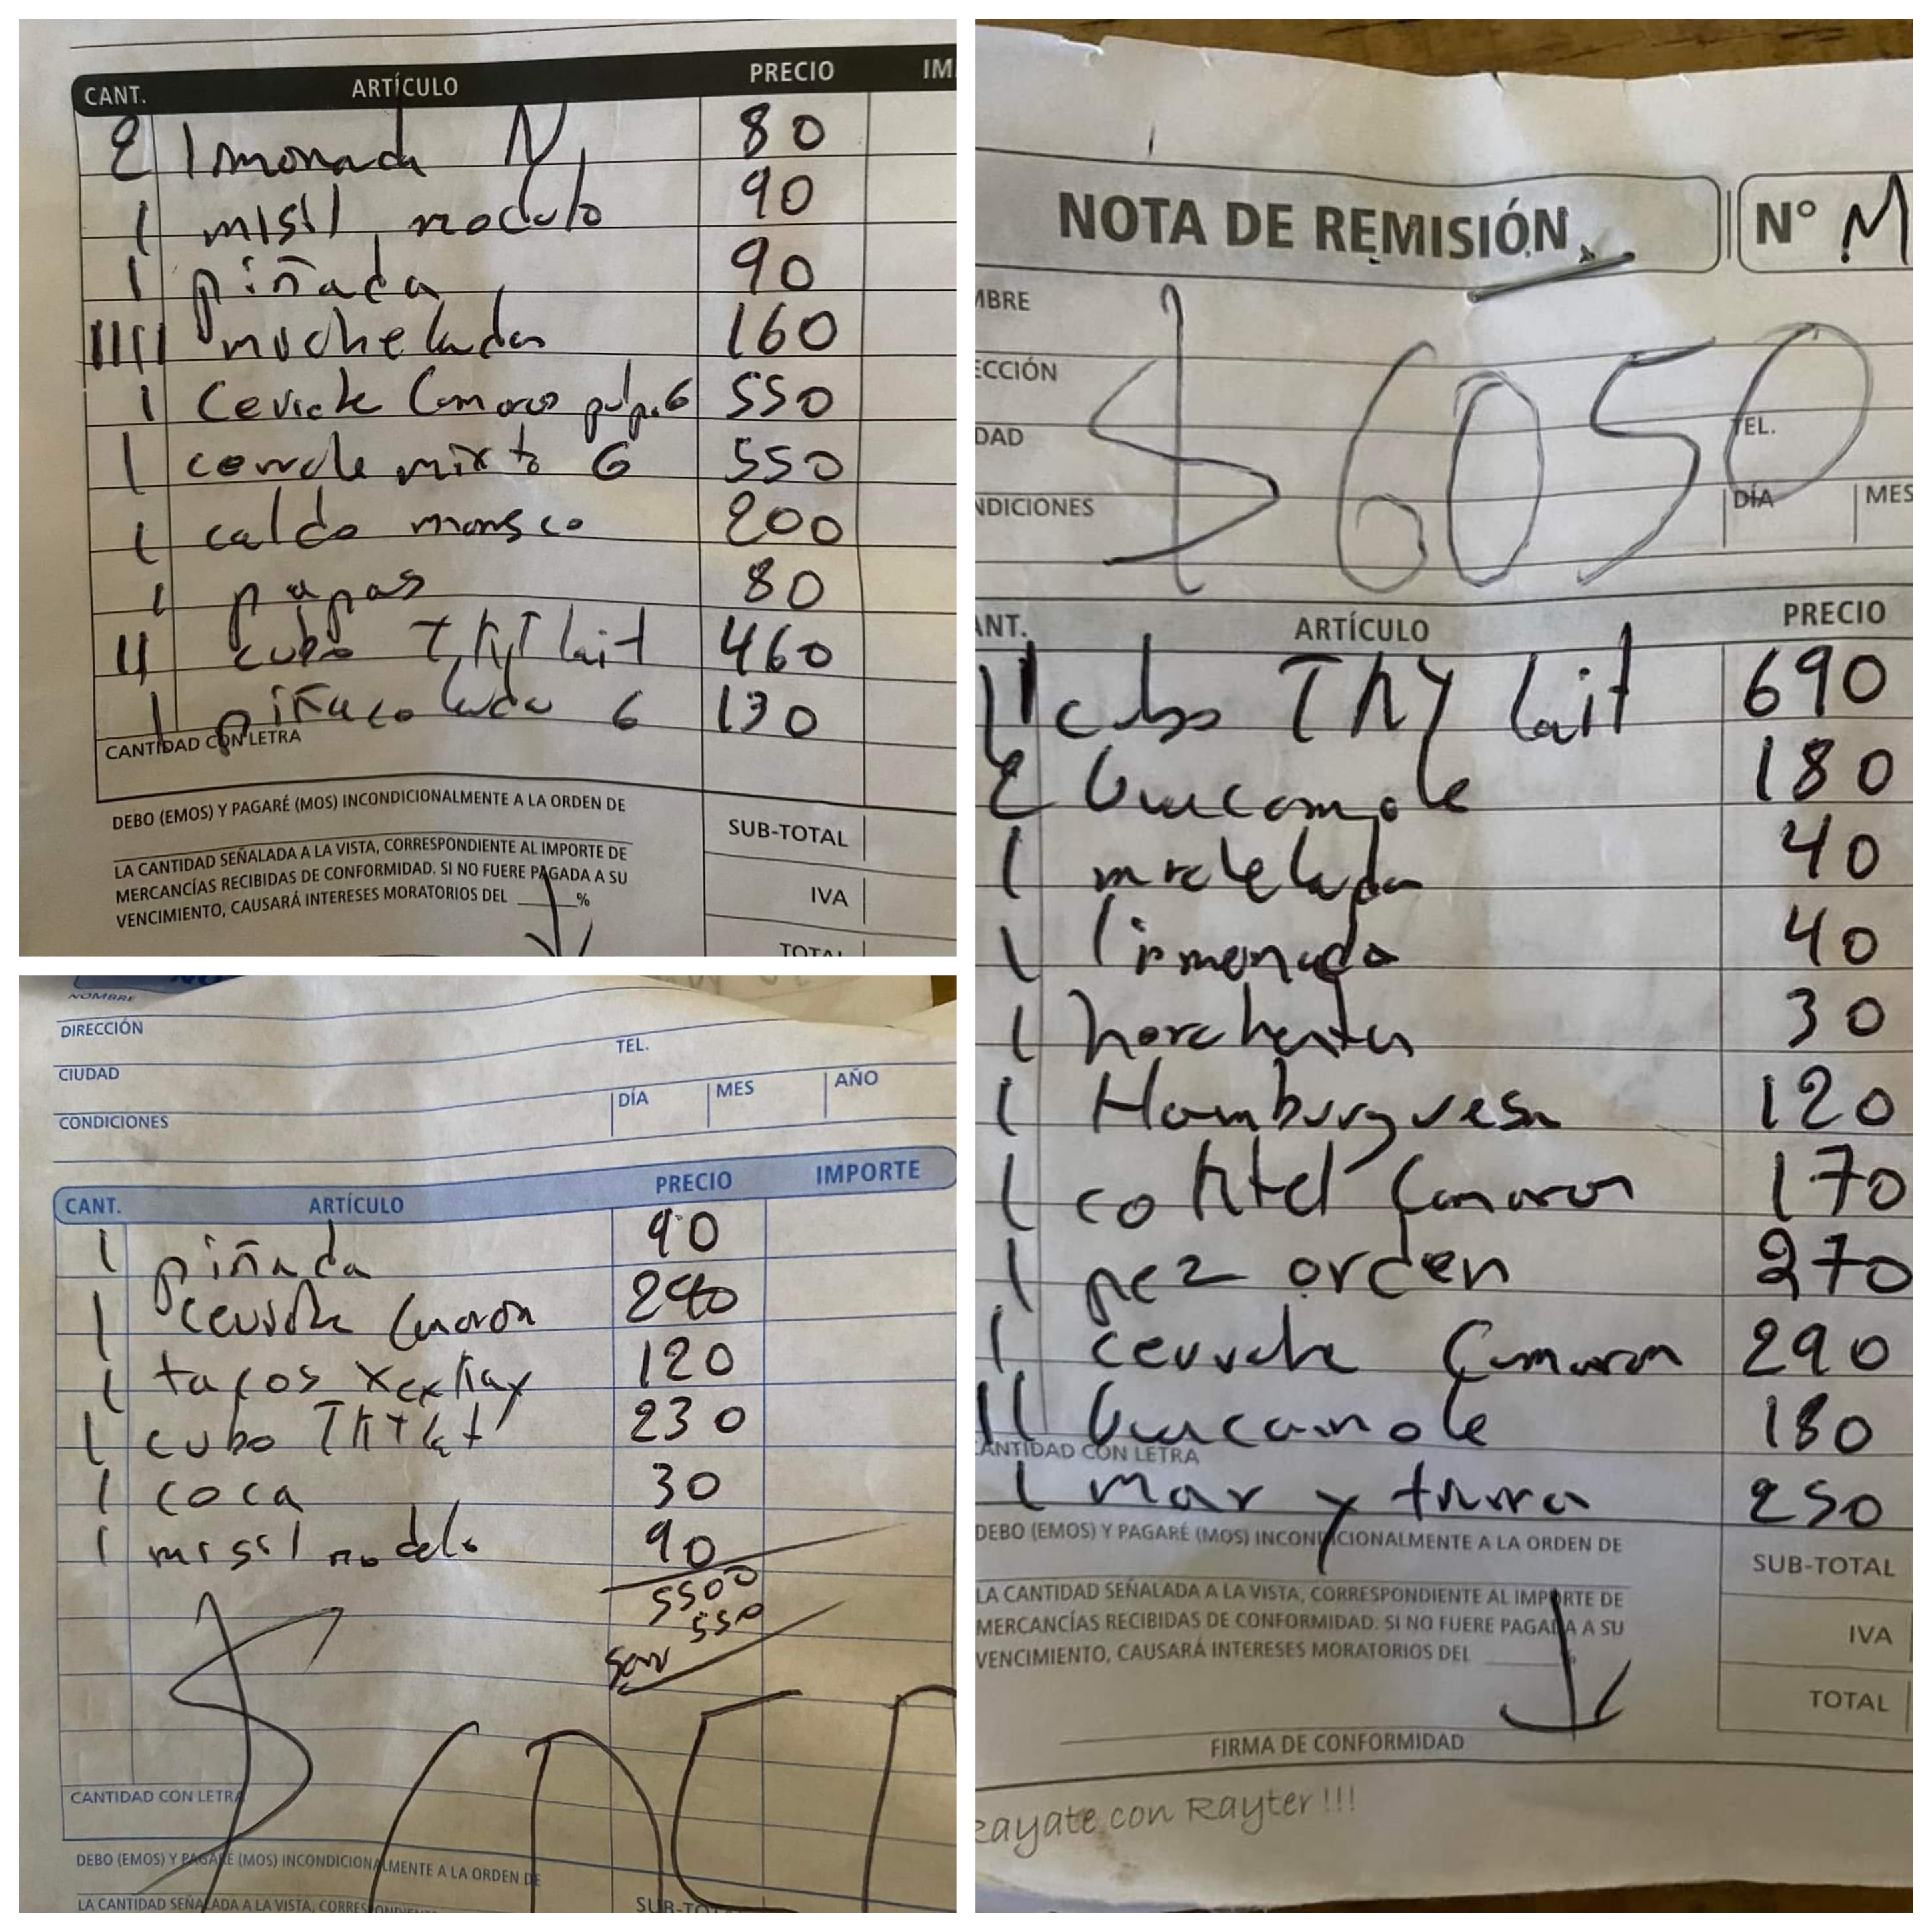 CANT. ARTÍCULO PRECIO IM
2 lmonada N 80
1 misil modulo 90
1 piñada 90
IIIII micheladas 160
1 Ceviche Camaron pulpo 6 550
1 ceviche mixto 6 550
1 caldo marisco 200
1 papas 80
II cubo TKT lait 460
1 piñacolada 6 130
CANTIDAD CON LETRA
DEBO (EMOS) Y PAGARÉ (MOS) INCONDICIONALMENTE A LA ORDEN DE
SUB-TOTAL
LA CANTIDAD SEÑALADA A LA VISTA, CORRESPONDIENTE AL IMPORTE DE
MERCANCÍAS RECIBIDAS DE CONFORMIDAD. SI NO FUERE PAGADA A SU
IVA
VENCIMIENTO, CAUSARÁ INTERESES MORATORIOS DEL ______%
TOTAL
NOMBRE
DIRECCIÓN
TEL.
CIUDAD
DÍA MES AÑO
CONDICIONES
CANT. ARTÍCULO PRECIO IMPORTE
1 piñada 90
1 ceviche Camarón 290
1 tacos 120
1 cubo TKT lait 230
1 coca 30
1 misil modelo 90
5500
550
$
CANTIDAD CON LETRA
DEBO (EMOS) Y PAGARÉ (MOS) INCONDICIONALMENTE A LA ORDEN DE
LA CANTIDAD SEÑALADA A LA VISTA, CORRESPONDIENTE
SUB-TO
NOTA DE REMISIÓN N° M
MBRE
ECCIÓN
$6050
DAD TEL.
NDICIONES DÍA MES
ANT. ARTÍCULO PRECIO
III cubo TKT lait 690
2 Guacamole 180
1 michelada 40
1 limonada 40
1 horchata 30
1 Hamburguesa 120
1 coktel Camaron 170
1 pez orden 270
1 ceviche Camaron 290
II Guacamole 180
CANTIDAD CON LETRA
1 mar y tierra 250
DEBO (EMOS) Y PAGARÉ (MOS) INCONDICIONALMENTE A LA ORDEN DE
SUB-TOTAL
LA CANTIDAD SEÑALADA A LA VISTA, CORRESPONDIENTE AL IMPORTE DE
MERCANCÍAS RECIBIDAS DE CONFORMIDAD. SI NO FUERE PAGADA A SU
IVA
VENCIMIENTO, CAUSARÁ INTERESES MORATORIOS DEL ______%
TOTAL
FIRMA DE CONFORMIDAD
Rayate con Rayter!!!